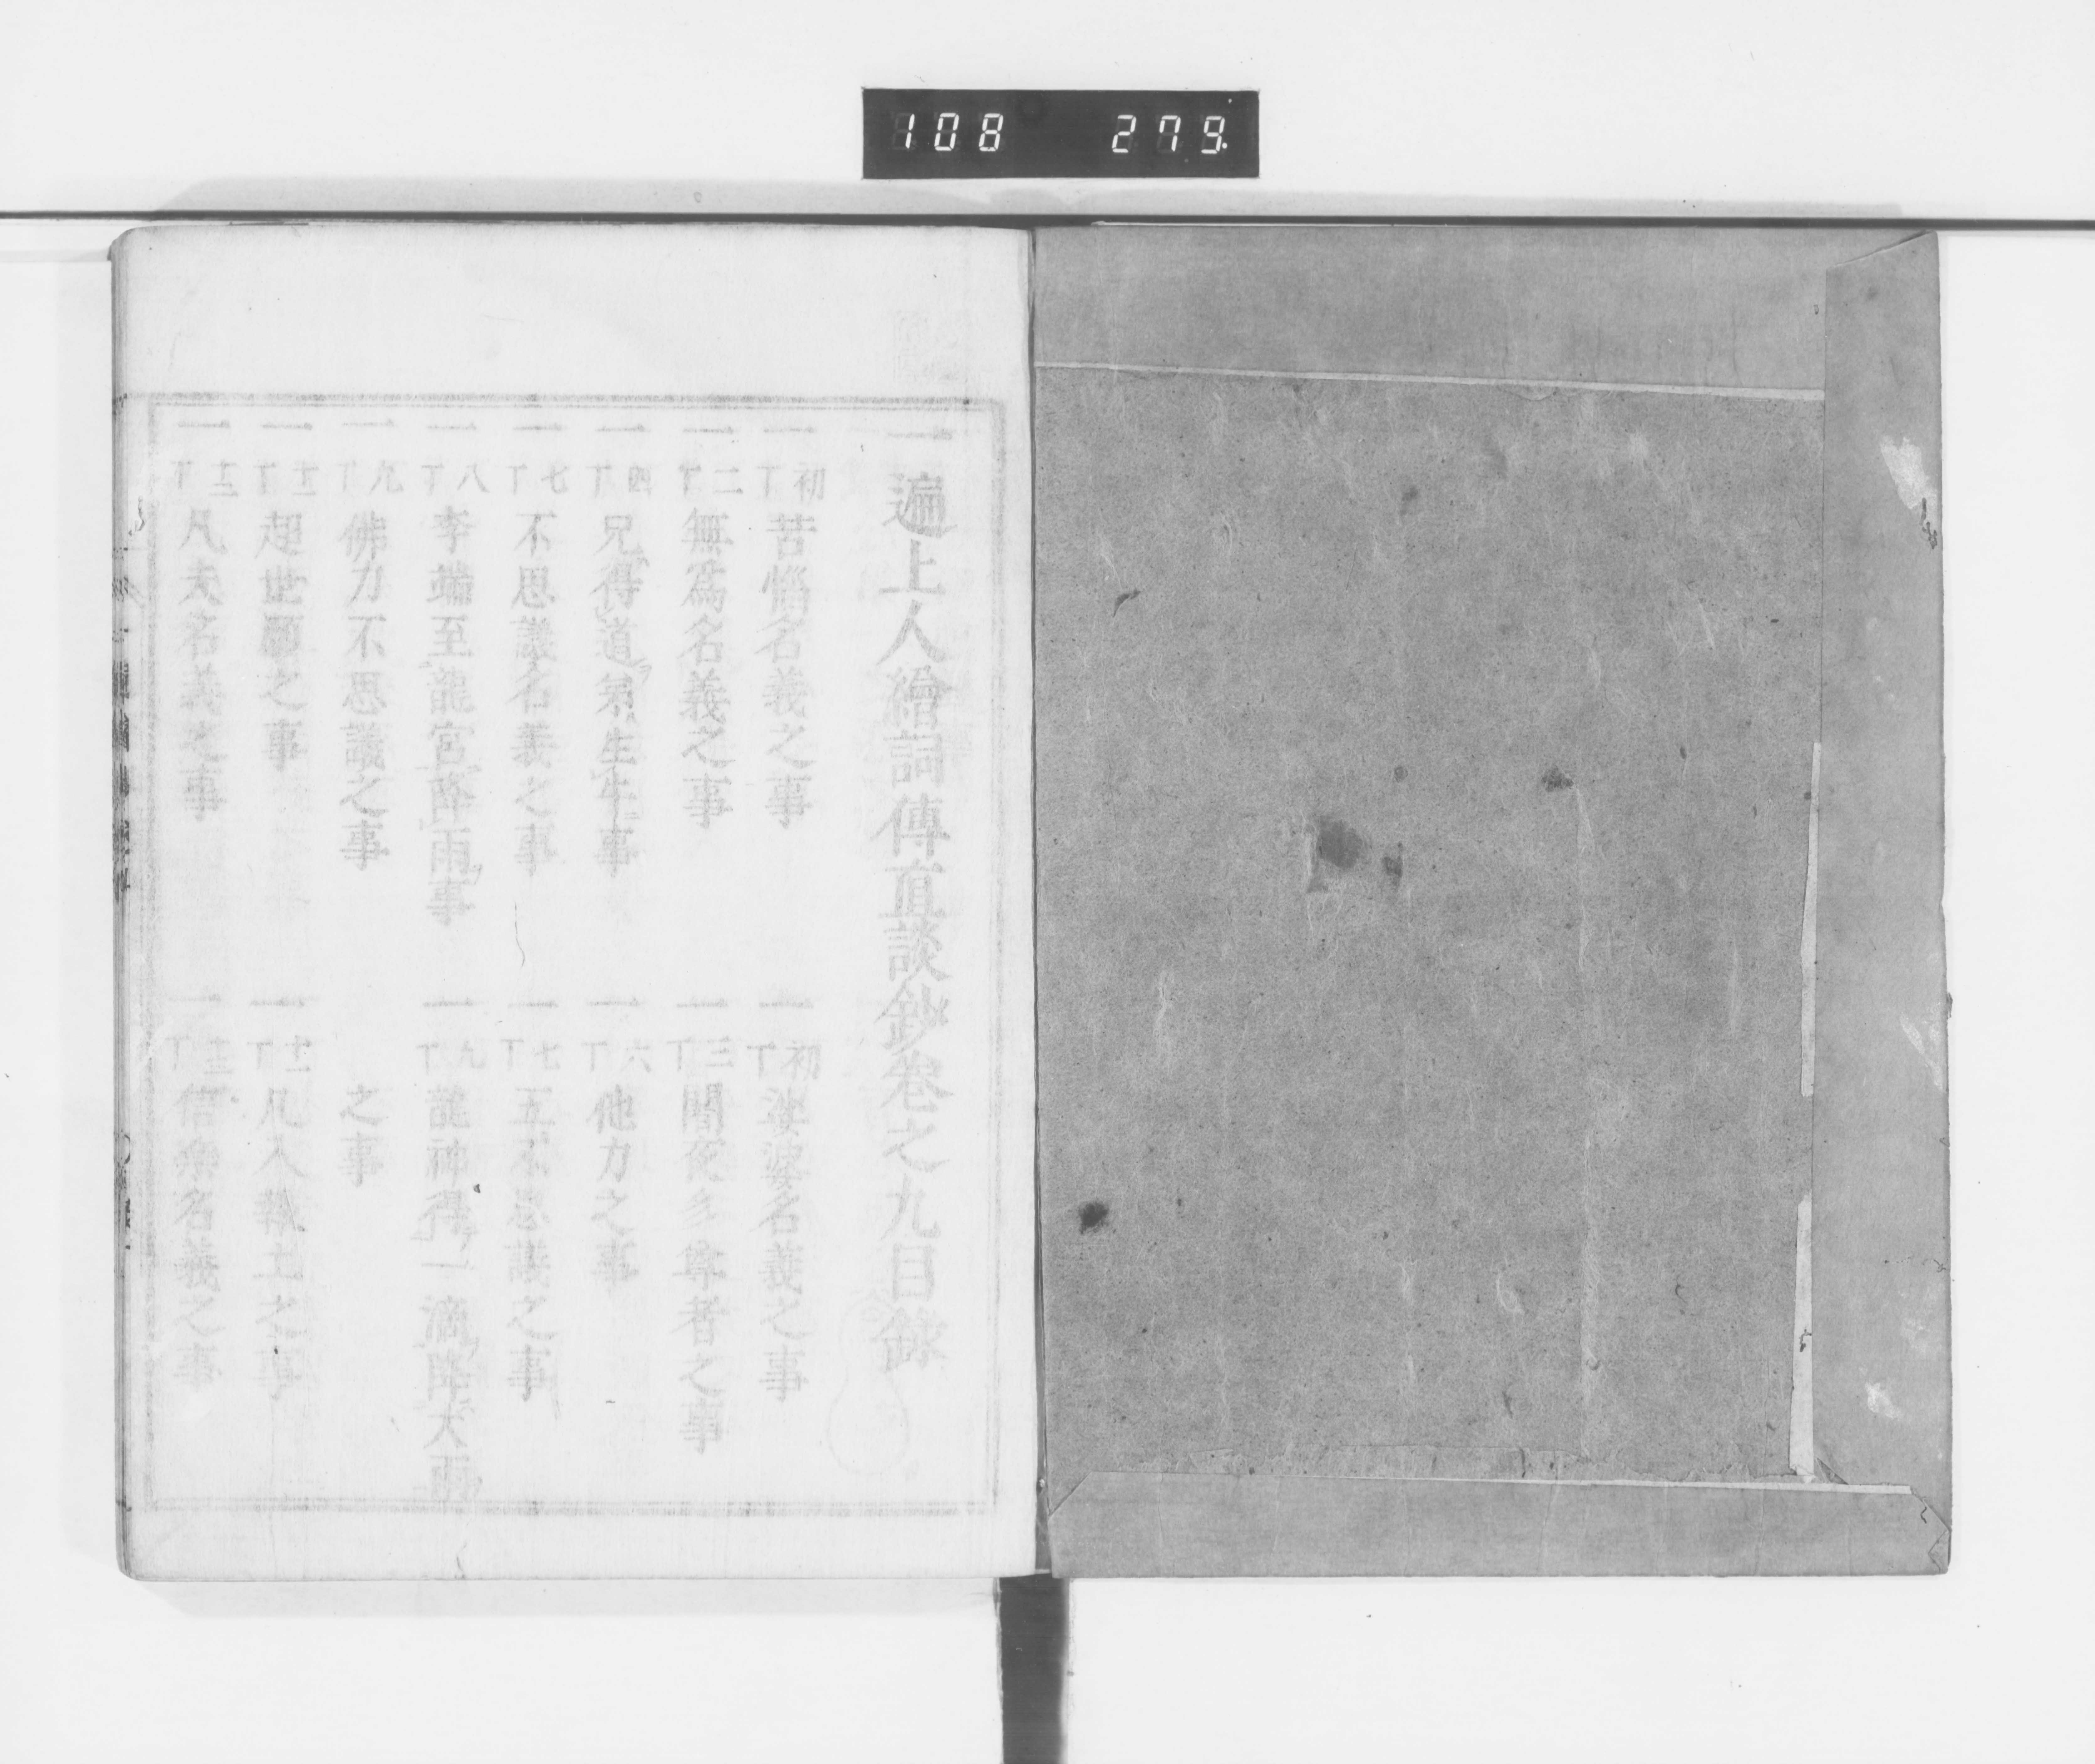 108 279
一遍上人繪詞傳直談鈔卷之九目錄
一 初丁 苦惱名義之事 一 初丁 娑婆名義之事
一 二丁 無爲名義之事 一 三丁 閻夜多尊者之事
一 四丁 兄得道弟生牛事 一 六丁 他力之事
一 七丁 不思議名義之事 一 七丁 五不思議之事
一 八丁 李端至龍宮降雨事 一 九丁 龍神得一滴降大雨
一 九丁 佛力不思議之事 之事
一 十一丁 超世願之事 一 十二丁 凡入報土之事
一 十二丁 凡夫名義之事 一 十三丁 信樂名義之事